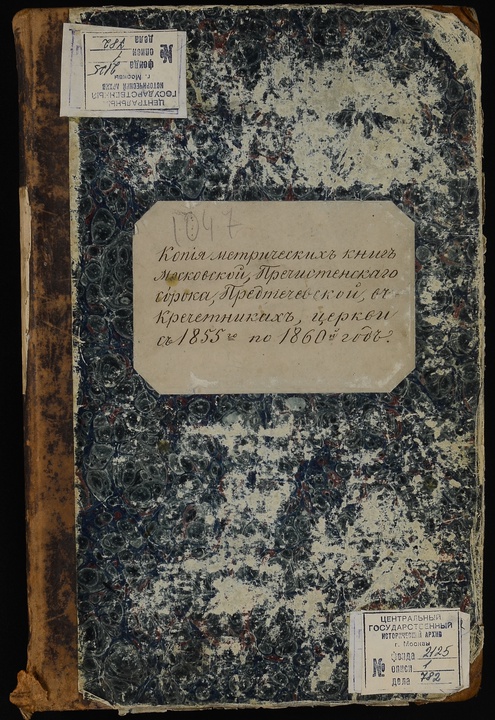 ЦЕНТРАЛЬНЫЙ
ГОСУДАРСТВЕННЫЙ
ИСТОРИЧЕСКИЙ АРХИВ
г. Москвы
фонда 2125
№ описи 1
дела 782
1047
Копія метрическихъ книгъ
Московской, Пречистенскаго
сорока, Предтечевской, въ
Кречетникахъ, церкви
съ 1855го по 1860й годъ.
ЦЕНТРАЛЬНЫЙ
ГОСУДАРСТВЕННЫЙ
ИСТОРИЧЕСКИЙ АРХИВ
г. Москвы
фонда 2125
№ описи 1
дела 782